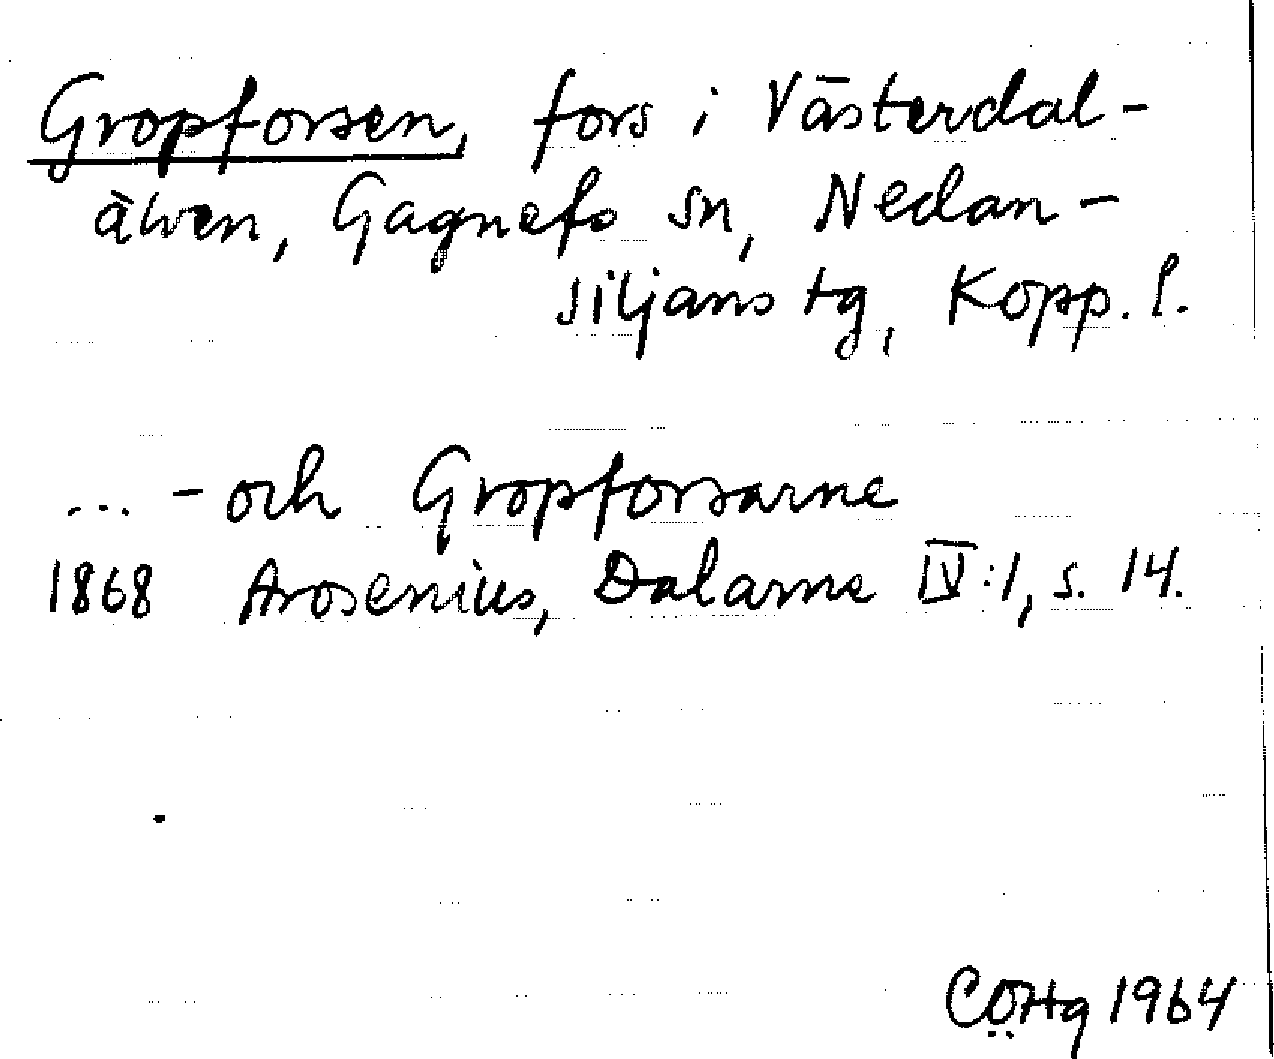 Gropforsen, fors i Västerdal-
älven, Gagnefs sn, Nedan-
siljans tg, Kopp. l.
... - och Gropforsarne
1868 Arosenius, Dalarne IV:1, s. 14.
CÖHg 1964